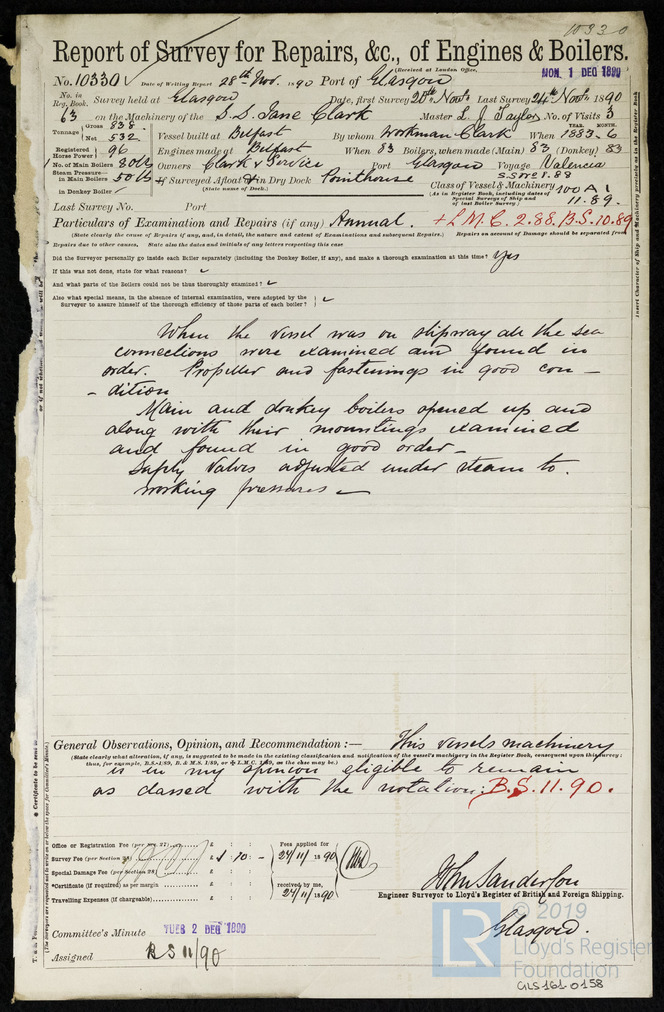 10330
Report of Survey for Repairs, &c., of Engines & Boilers.
(Received at London Office,
No. 10330 Date of Writing Report 28th Nov. 1890 Port of Glasgow MON. 1 DEC 1890
No. in Reg. Book. Survey held at Glasgow Date, first Survey 20th Novr Last Survey 24th Novr 1890
63 on the Machinery of the S.S. Jane Clark Master L. J. Taylor No. of Visits 3
Tonnage Gross 838 Net 532 Vessel built at Belfast By whom Workman Clark When YEAR. MONTH. 1883. 6
Registered Horse Power 96 Engines made at Belfast When 83 Boilers, when made (Main) 83 (Donkey) 83
No. of Main Boilers Owners Clark & Service Port Glasgow Voyage Valencia
Steam Pressure— in Main Boilers If Surveyed Afloat or in Dry Dock Pointhouse
(State name of Dock.)
in Donkey Boiler
Class of Vessel & Machinery 100 A 1
(As in Register Book, including dates of Special Surveys of Ship and of last Boiler Survey) 11.89.
Last Survey No. Port
Particulars of Examination and Repairs (if any) Annual. + L.M.C. 2.88. B.S. 10.89
(State clearly the cause of Repairs if any, and, in detail, the nature and extent of Examinations and subsequent Repairs.) Repairs on account of Damage should be separated from
Repairs due to other causes, State also the dates and initials of any letters respecting this case
Did the Surveyor personally go inside each Boiler separately (including the Donkey Boiler, if any), and make a thorough examination at this time? Yes
If this was not done, state for what reasons?
And what parts of the Boilers could not be thus thoroughly examined?
Also what special means, in the absence of internal examination, were adopted by the
Surveyor to assure himself of the thorough efficiency of those parts of each boiler?
When the vessel was on slipway all the sea
connections were examined and found in
order. Propeller and fastenings in good con-
-dition
Main and donkey boilers opened up and
along with their mountings examined
and found in good order-
Safety Valves adjusted under steam to
working pressures-
General Observations, Opinion, and Recommendation:— This vessels machinery
(State clearly what alteration, if any, is suggested to be made in the existing classification and notification of the vessel's machinery in the Register Book, consequent upon this survey;
thus, for example, B.S. 1/89, B. & M.S. 1/89, or L.M.C. 1/89, as the case may be.)
is in my opinion eligible to remain
as classed with the notation: B.S. 11.90.
Office or Registration Fee (per Sec. 27) £ : :
Survey Fee (per Section 28) £ 1 : 10 : -
Special Damage Fee (per Section 28) £ : :
*Certificate (if required) as per margin £ : :
Travelling Expenses (if chargeable) £ : :
Fees applied for
24/11/1890
received by me,
24/11/1890
John Sanderson
Engineer Surveyor to Lloyd's Register of British and Foreign Shipping.
Glasgow.
Committee's Minute TUES 2 DEC 1890
Assigned B S 11/90
LR
© 2019
Lloyd's Register
Foundation
GLS161-0158
Insert Character of Ship and Machinery precisely as in the Register Book
* Certificate to be sent to